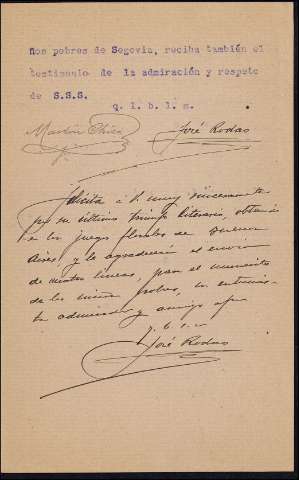 ños pobres de Segovia, reciba también el
testimonio de la admiración y respeto
de S.S.S.
q. l. b. l. m.
José Rodao
Felicita á V. muy sinceramente
por su último triunfo literario, obtenido
en los juegos florales de Buenos
Aires, y le agradecerá el envío
de cuatro líneas, para el monumento
de los niños pobres, su
admirador y amigo afmo
José Rodao